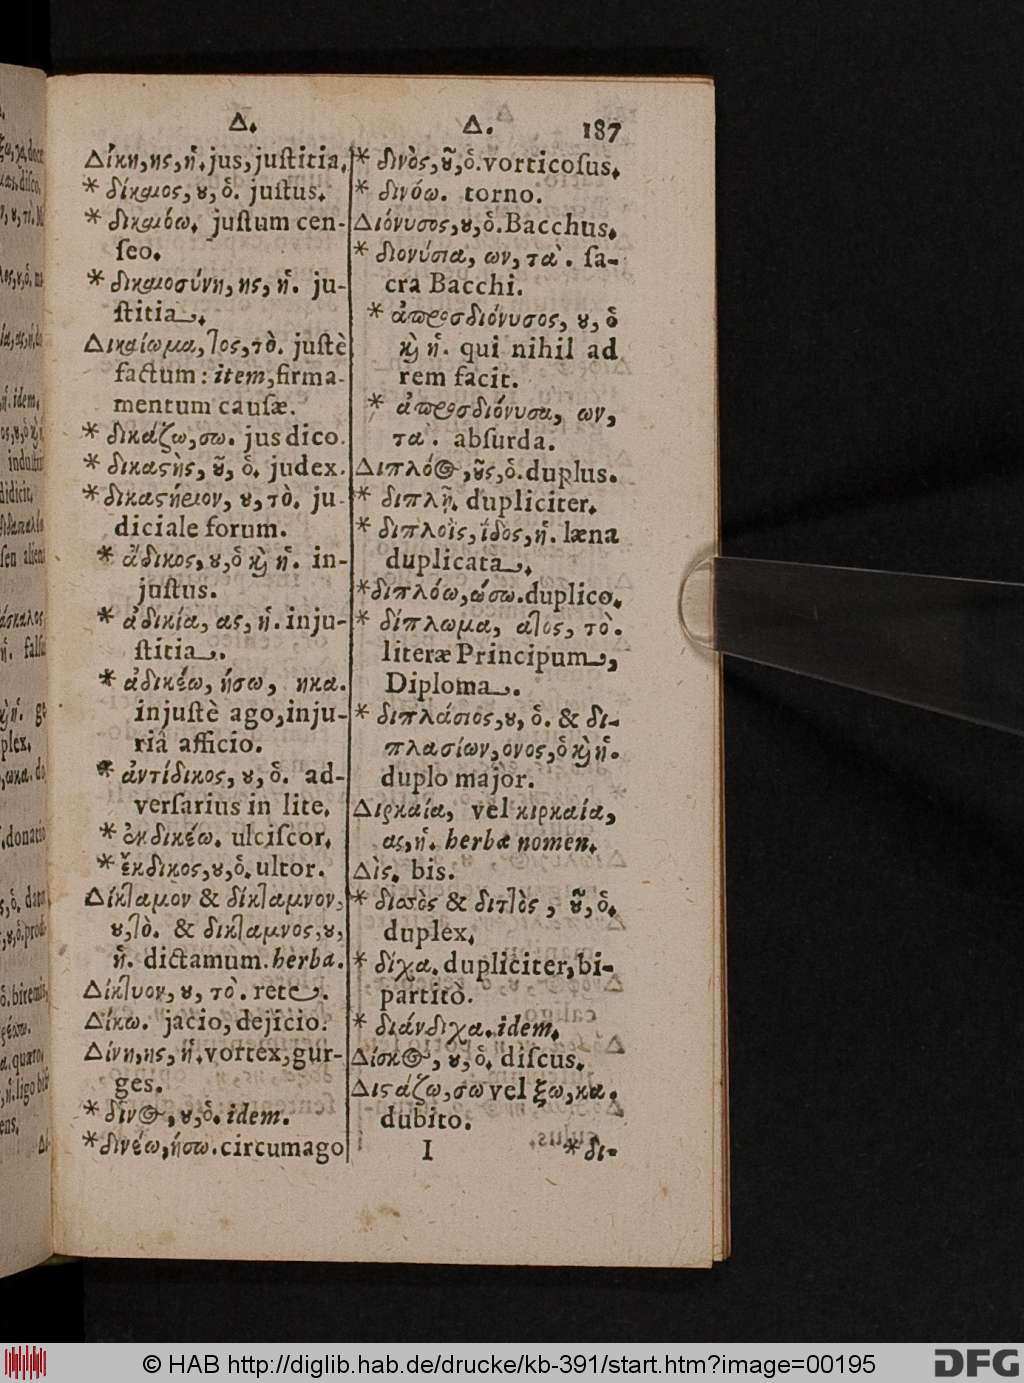 Δ. Δ. 187
Δίκη, ης, ἡ. jus, juſtitia.
* δίκαιος, ȣ, ὁ. juſtus.
* δικαιόω. juſtum cen-
ſeo.
* δικαιοσύνη, ης, ἡ. ju-
ſtitia.
Δικαίωμα, τος, τὸ. juſtè
factum: item, firma-
mentum cauſæ.
* δικάζω, σω. jus dico.
* δικαϛὴς, ȣ͂, ὁ. judex.
* δικαϛήριον, ȣ, τὸ. ju-
diciale forum.
* ἄδικος, ȣ, ὁ ϗ̀ ἡ. in-
juſtus.
* ἀδικία, ας, ἡ. inju-
ſtitia.
* ἀδικέω, ήσω, ηκα.
injuſtè ago, inju-
riâ afficio.
* ἀντίδικος, ȣ, ὁ. ad-
verſarius in lite.
* ἐκδικέω. ulciſcor.
* ἔκδικος, ȣ, ὁ. ultor.
Δίκταμον & δίκταμνον,
ȣ, τὸ. & δικταμνος, ȣ,
ἡ. dictamum. herba.
Δίκτυον, ȣ, τὸ. rete.
Δίκω. jacio, dejicio.
Δίνη, ης, ἡ. vortex, gur-
ges.
* δῖνος, ȣ, ὁ. idem.
* δινέω, ήσω. circumago
* δινὸς, ȣ͂, ὁ. vorticoſus.
* δινόω. torno.
Διόνυσος, ȣ, ὁ. Bacchus.
* διονύσια, ων, τὰ. ſa-
cra Bacchi.
* ἀπροσδιόνυσος, ȣ, ὁ
ϗ̀ ἡ. qui nihil ad
rem facit.
* ἀπροσδιόνυσα, ων,
τὰ. abſurda.
Διπλόος, ȣ͂ς, ὁ. duplus.
* διπλῆ. dupliciter.
* διπλοῒς, ΐδος, ἡ. læna
duplicata.
* διπλόω, ώσω. duplico.
* δίπλωμα, ατος, τὸ.
literæ Principum,
Diploma.
* διπλάσιος, ȣ, ὁ. & δι-
πλασίων, ονος, ὁ ϗ̀ ἡ.
duplo major.
Διρκαία, vel κιρκαία,
ας, ἡ. herbæ nomen.
Δὶς. bis.
* δισσὸς & διττὸς, ȣ͂, ὁ.
duplex.
* δίχα. dupliciter, bi-
partitò.
* διάνδιχα. idem.
Δίσκος, ȣ, ὁ. diſcus.
Διϛάζω, σω vel ξω, κα.
dubito.
I * δι-
© HAB http://diglib.hab.de/drucke/kb-391/start.htm?image=00195
DFG